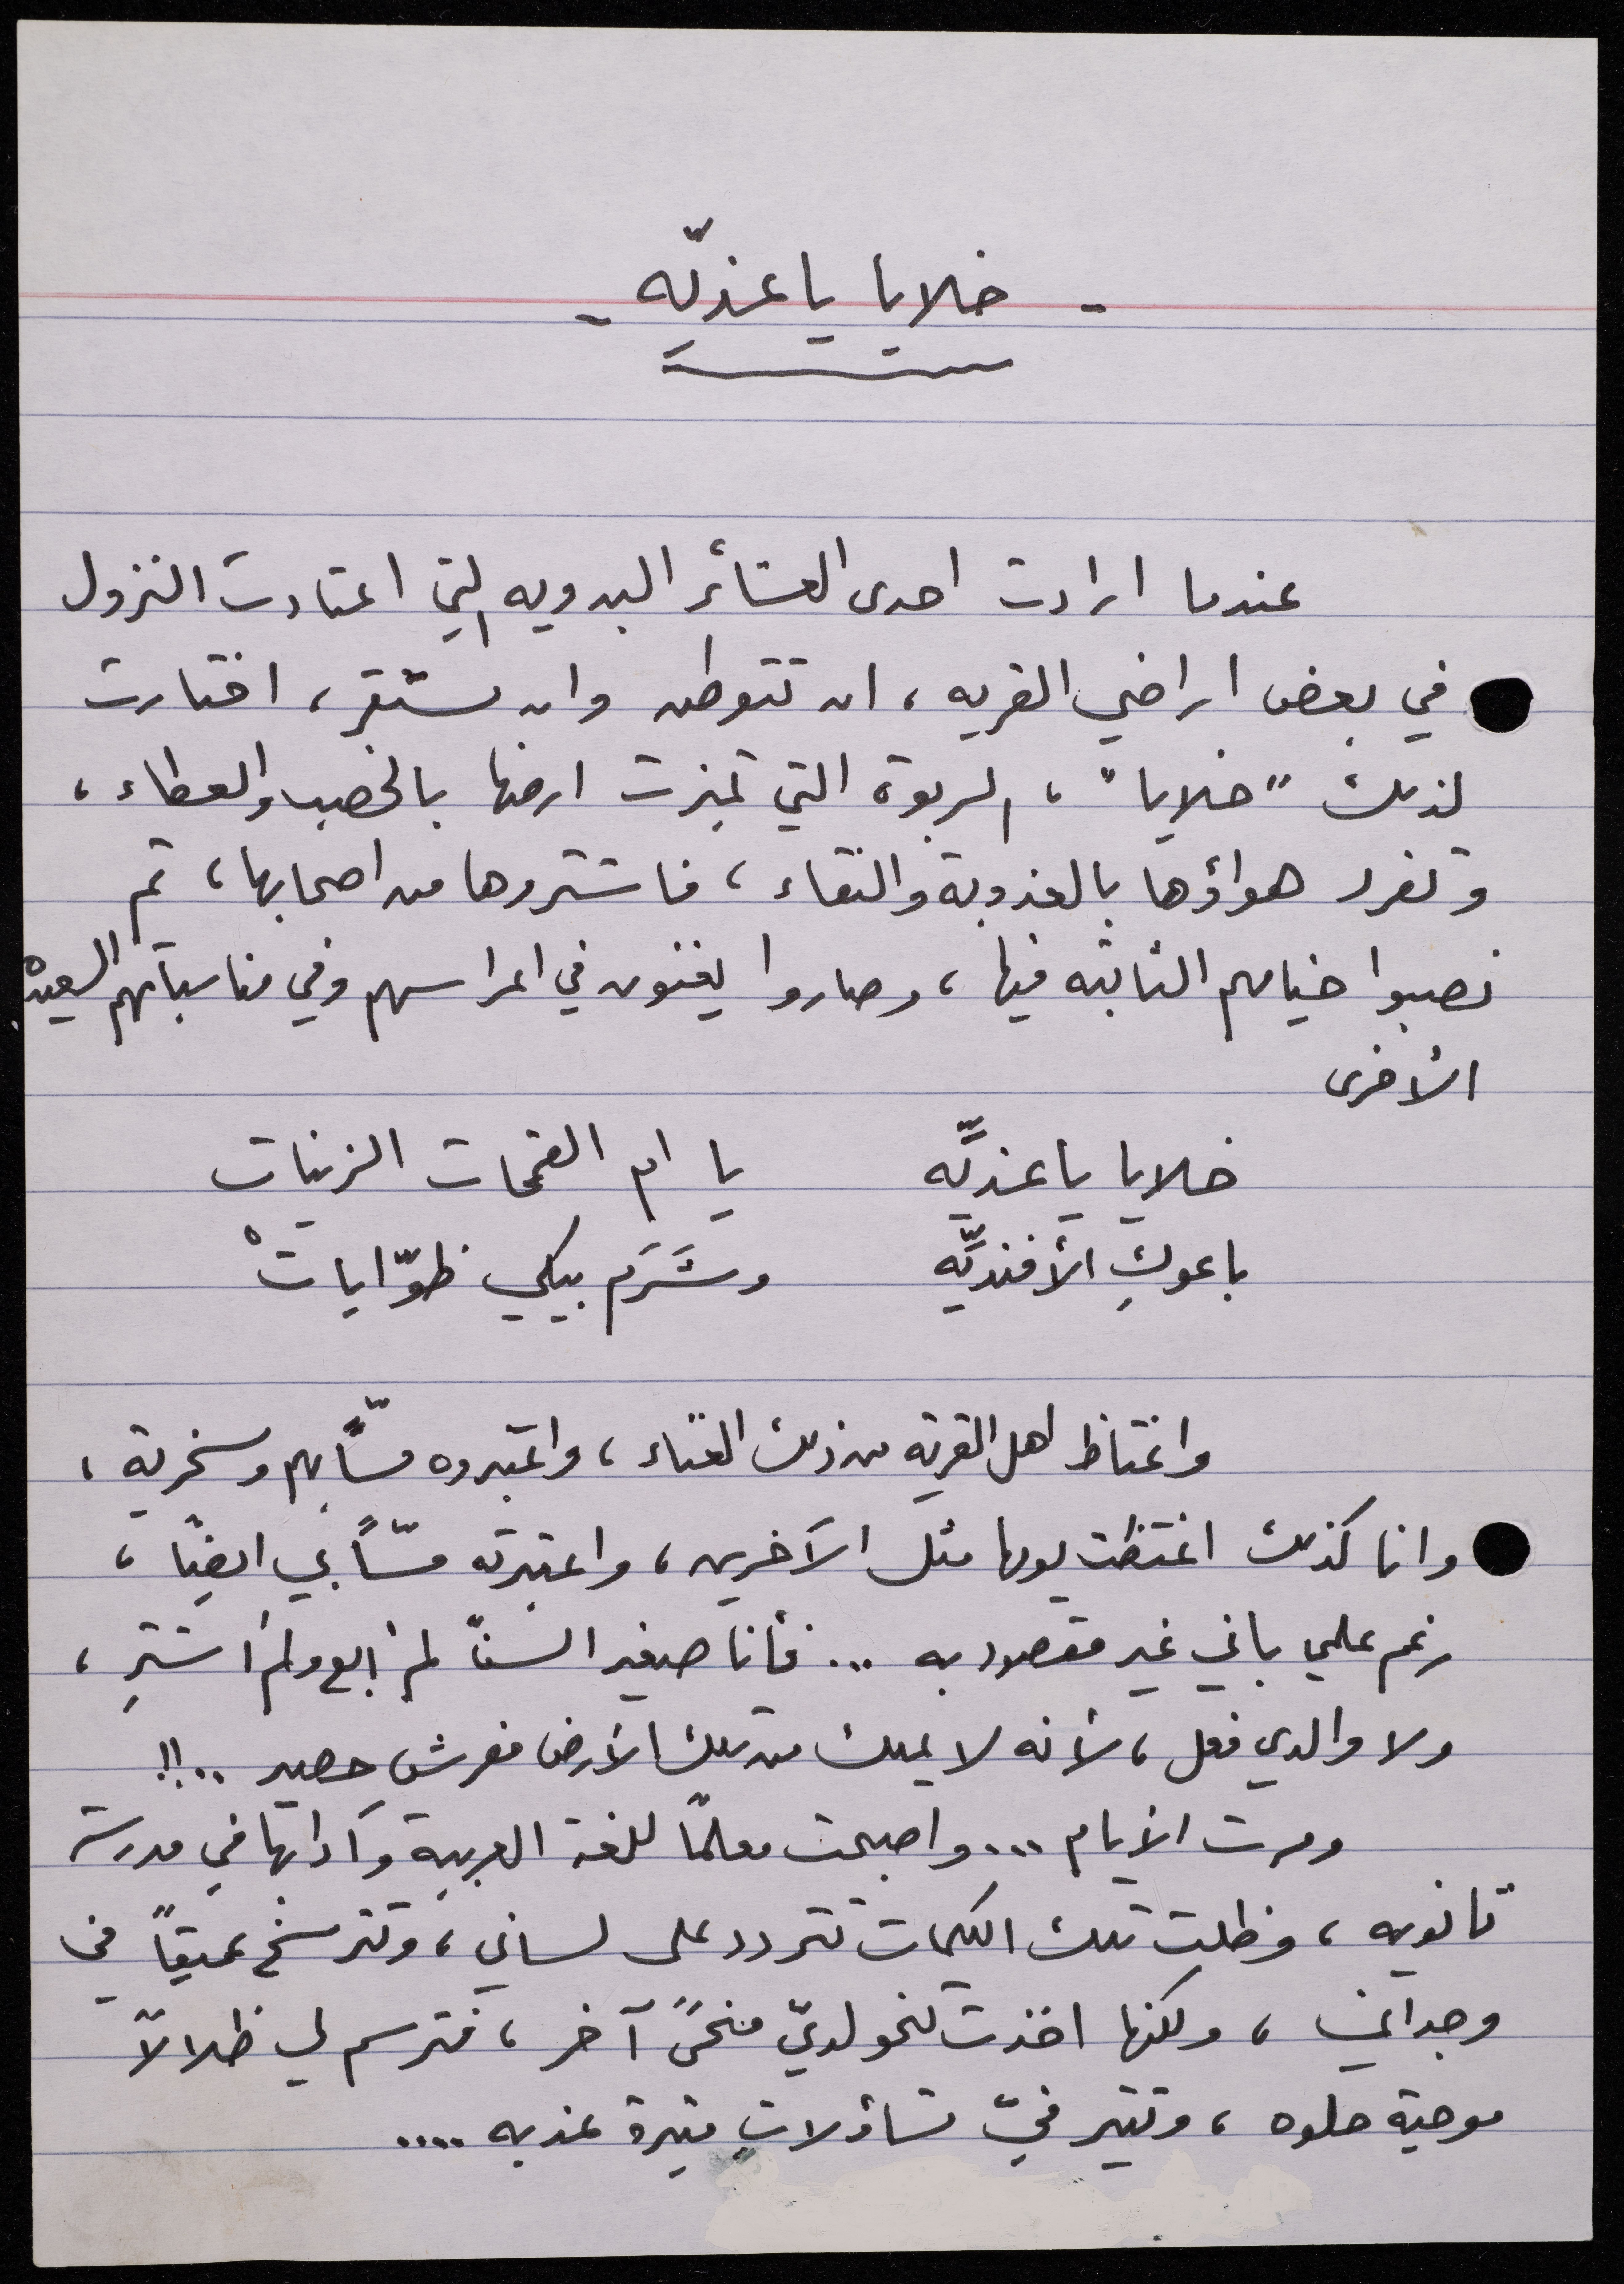 - خلايا يا عذيّه -
عندما ارادت احدى العشائر البدويه التي اعتادت النزول
في بعض اراضي القريه ، ان تتوطن وان تستقر ، اختارت
لذلك "خلايا" ، الربوة التي تميزت ارضها بالخصب والعطاء ،
وتفرد هواؤها بالعذوبة والنقاء ، فاشتروها من اصحابها ، ثم
نصبوا خيامهم الثابته فيها ، وصاروا يغنون في اعراسهم وفي مناسباتهم السعيده
الأخرى
خلايا يا عذيَّه يا ام القمحات الزينات
باعوكِ الأفنديَّه وشَرَم بيكي ظوّاياتْ
واغتاظ اهل القرية من ذلك الغناء ، واعتبروه مسّاً بهم وسخرية ،
وانا كذلك اغتظت يومها مثل الآخرين ، واعتبرته مسّاً بي ايضًا ،
رغم علمي باني غير مقصود به ... فأنا صغير السنّ لم ابع ولم اشترِ ،
ولا والدي فعل ، لأنه لا يملك من تلك الأرض مفرش حصير ..!!
ومرت الأيام ... واصبحت معلمًا للغة العربية وآدابها في مدرسة
ثانويه ، وظلت تلك الكلمات تتردد على لساني ، وتترسخ عميقاً في
وجداني ، ولكنها اخذت تنحو لديّ منحىً آخر ، فترسم لي ظلالاً
موحية حلوه ، وتثير فيّ تساؤلاتٍ مثيرة عذبه ....